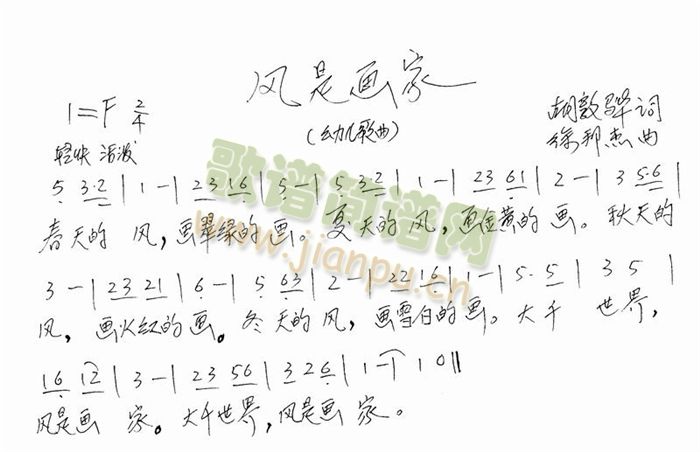 风是画家
(幼儿歌曲)
1=F 2/4
胡敦骅词
徐邦杰曲
轻快 活泼
5 3·2 | 1 — | 23 16 | 5 — | 5 32 | 1 — | 23 61 | 2 — | 3 5·6 |
春天的 风，画翠绿的画。夏天的 风，画金黄的 画。秋天的
3 — | 23 21 | 6 — | 5 63 | 2 — | 22 16 | 1 — | 5·5 | 3 5 |
风，画火红的画。冬天的风，画雪白的画。大千 世界，
16 12 | 3 — | 23 56 | 3 26 | 1 — | 1 0 ‖
风是画 家。大千世界，风是画 家。
歌谱简谱网
www.jianpu.cn